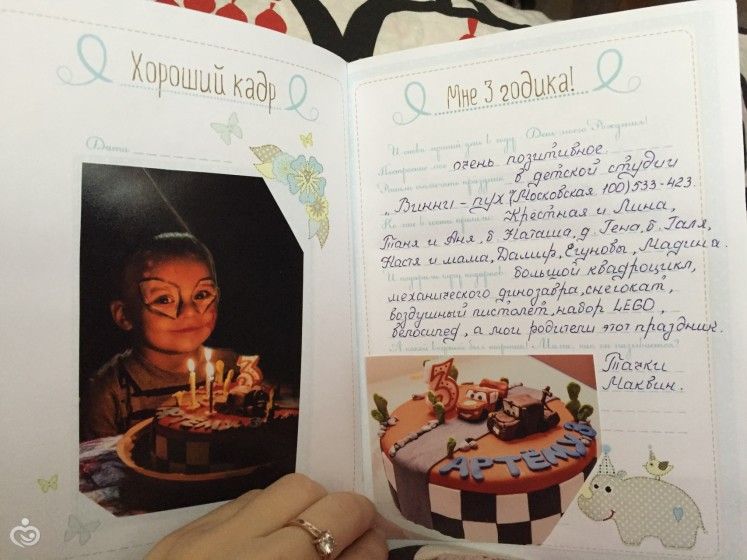 Хороший кадр
Дата
Мне 3 годика!
И опять лучший день в году День моего Рождения!
Настроение мое очень позитивное.
Решили отмечать праздник в детской студии
„Винни-пух"(Московская 100)533-423.
Ко мне в гости пришли: Крёстная и Лина,
Таня и Аня, б. Наташа, д. Гена, б. Галя,
Настя и мама, Дамир, Егуновы, Мадина.
И подарили кучу подарков: большой квадроцикл,
механического динозавра, снегокат,
воздушный пистолет, набор LEGO,
велосипед, а мои родители этот праздник.
А какой вкусный был тортик!
Тачки
Маквин.
3
АРТЁМУ 3